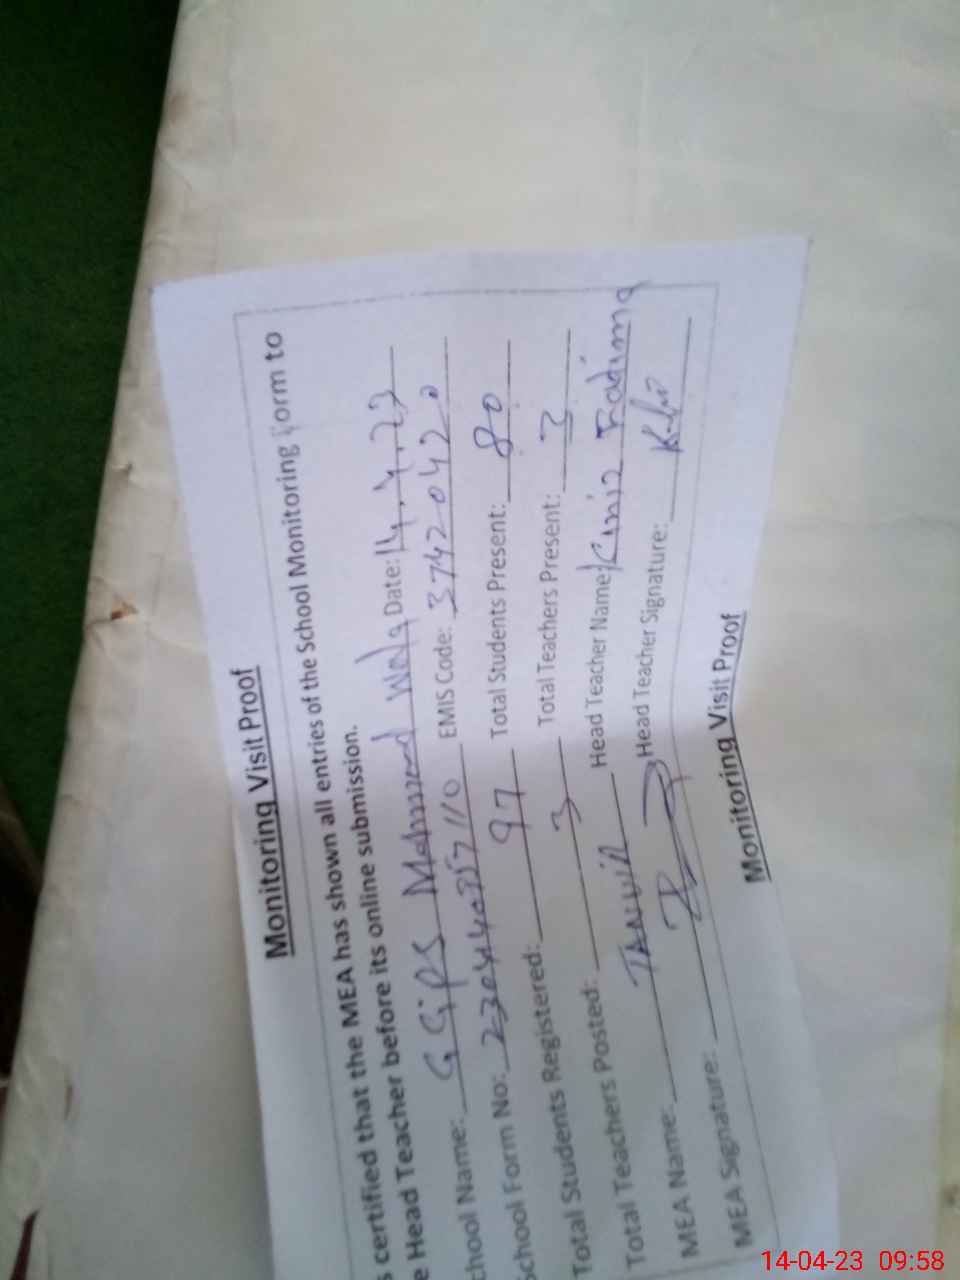 Monitoring Visit Proof
s certified that the MEA has shown all entries of the School Monitoring Form to
e Head Teacher before its online submission.
chool Name: GGPS Mohmmad Wala Date: 14.4.23
School Form No: EMIS Code: 37420420
Total Students Registered: 97 Total Students Present: 80
Total Teachers Posted: 3 Total Teachers Present: 3
MEA Name: TANVIR Head Teacher Name: Kaniz Fatima
MEA Signature: Head Teacher Signature:
Monitoring Visit Proof
14-04-23 09:58